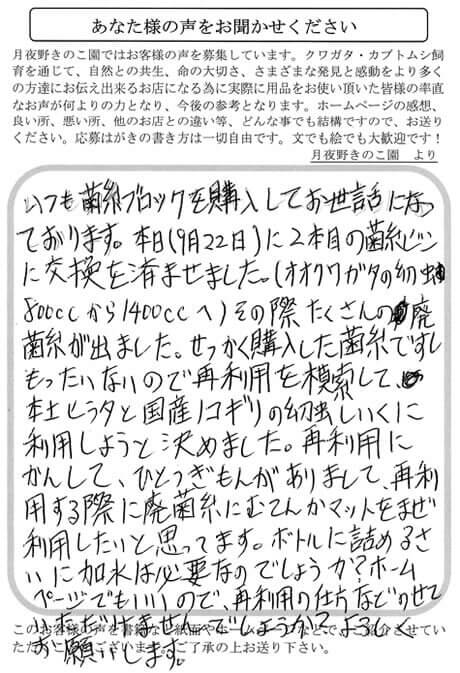 あなた様の声をお聞かせください
月夜野きのこ園ではお客様の声を募集しています。クワガタ・カブトムシ飼
育を通じて、自然との共生、命の大切さ、さまざまな発見と感動をより多く
の方達にお伝え出来るお店になる為に実際に用品をお使い頂いた皆様の率直
なお声が何よりの力となり、今後の参考となります。ホームページの感想、
良い所、悪い所、他のお店との違い等、どんな事でも結構ですので、お送り
ください。応募はがきの書き方は一切自由です。文でも絵でも大歓迎です！
月夜野きのこ園　より
いつも菌糸ブロックを購入してお世話になっ
ております。本日(9月22日)に2本目の菌糸ビン
に交換を済ませました。(オオクワガタの幼虫
800ccから1400ccへ)その際たくさんの廃
菌糸が出ました。せっかく購入した菌糸ですし
もったいないので再利用を模索して、
本土ヒラタと国産ノコギリの幼虫しいくに
利用しようと決めました。再利用に
かんして、ひとつぎもんがありまして、再利
用する際に廃菌糸にむてんかマットをまぜ
利用したいと思ってます。ボトルに詰めるさ
いに加水は必要なのでしょうか？ホーム
ページでもいいので、再利用の仕方などのせて
いただけませんでしょうか？よろしく
お願いします。
このお客様の声を書籍など紙面やホームページなどで、ご紹介させてい
ただくことがございます。ご了承の上お送り下さい。